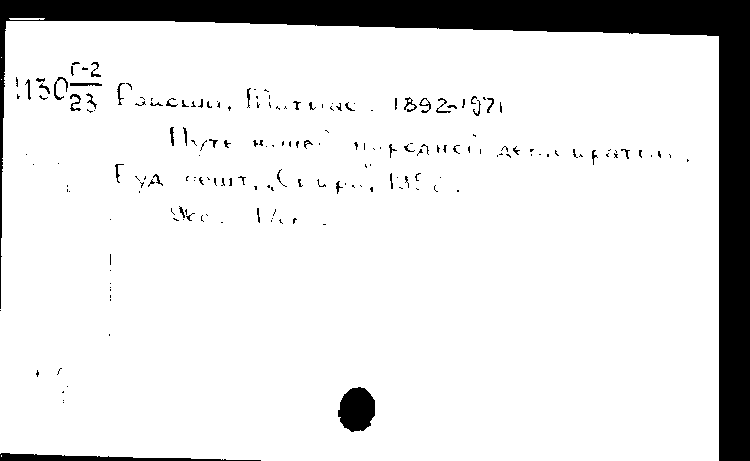 Г-2
1130
23
Ракоши, Матиас. 1892-1971
Путь нашей народной демократии.
Будапешт, „Сикра",